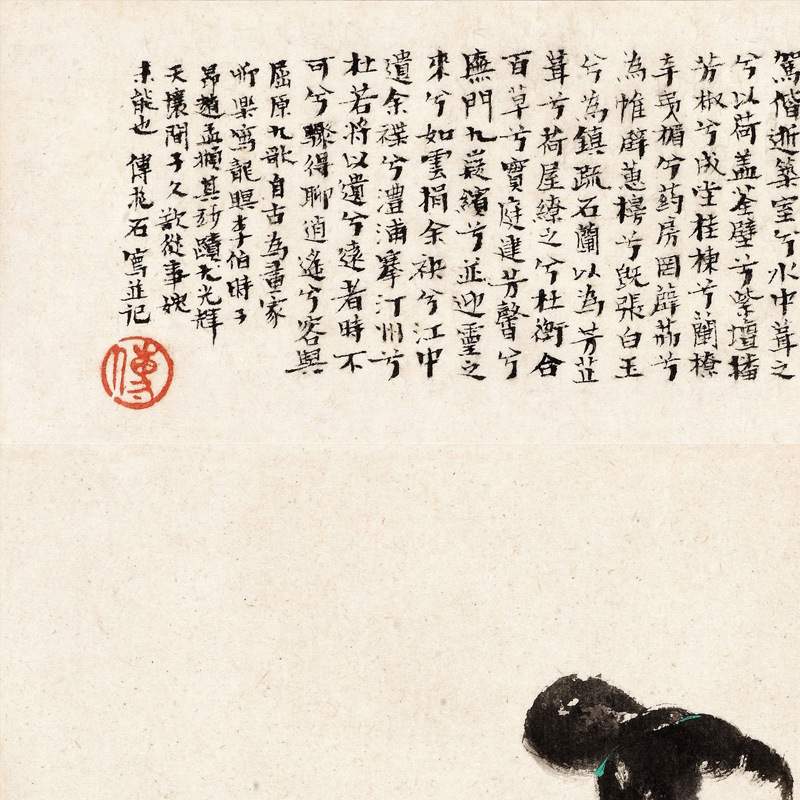 駕偕逝築室兮水中葺之
兮以荷盖荃壁兮紫壇播
芳椒兮成堂桂棟兮蘭橑
辛夷楣兮药房罔薜茘兮
為帷擗蕙櫋兮既張白玉
兮為鎮疏石蘭以為芳芷
葺兮荷屋繚之兮杜衡合
百草兮實庭建芳馨兮
廡門九嶷繽兮並迎靈之
來兮如雲捐余袂兮江中
遺余褋兮澧浦搴汀州兮
杜若將以遺兮遠者時不
可兮驟得聊逍遙兮容與
屈原九歌自古為畫家
所樂寫龍瞑李伯時子
昂趙孟頫其妙蹟尤光輝
天壤間予久欲從事愧
未能也 傅抱石寫並記
傅